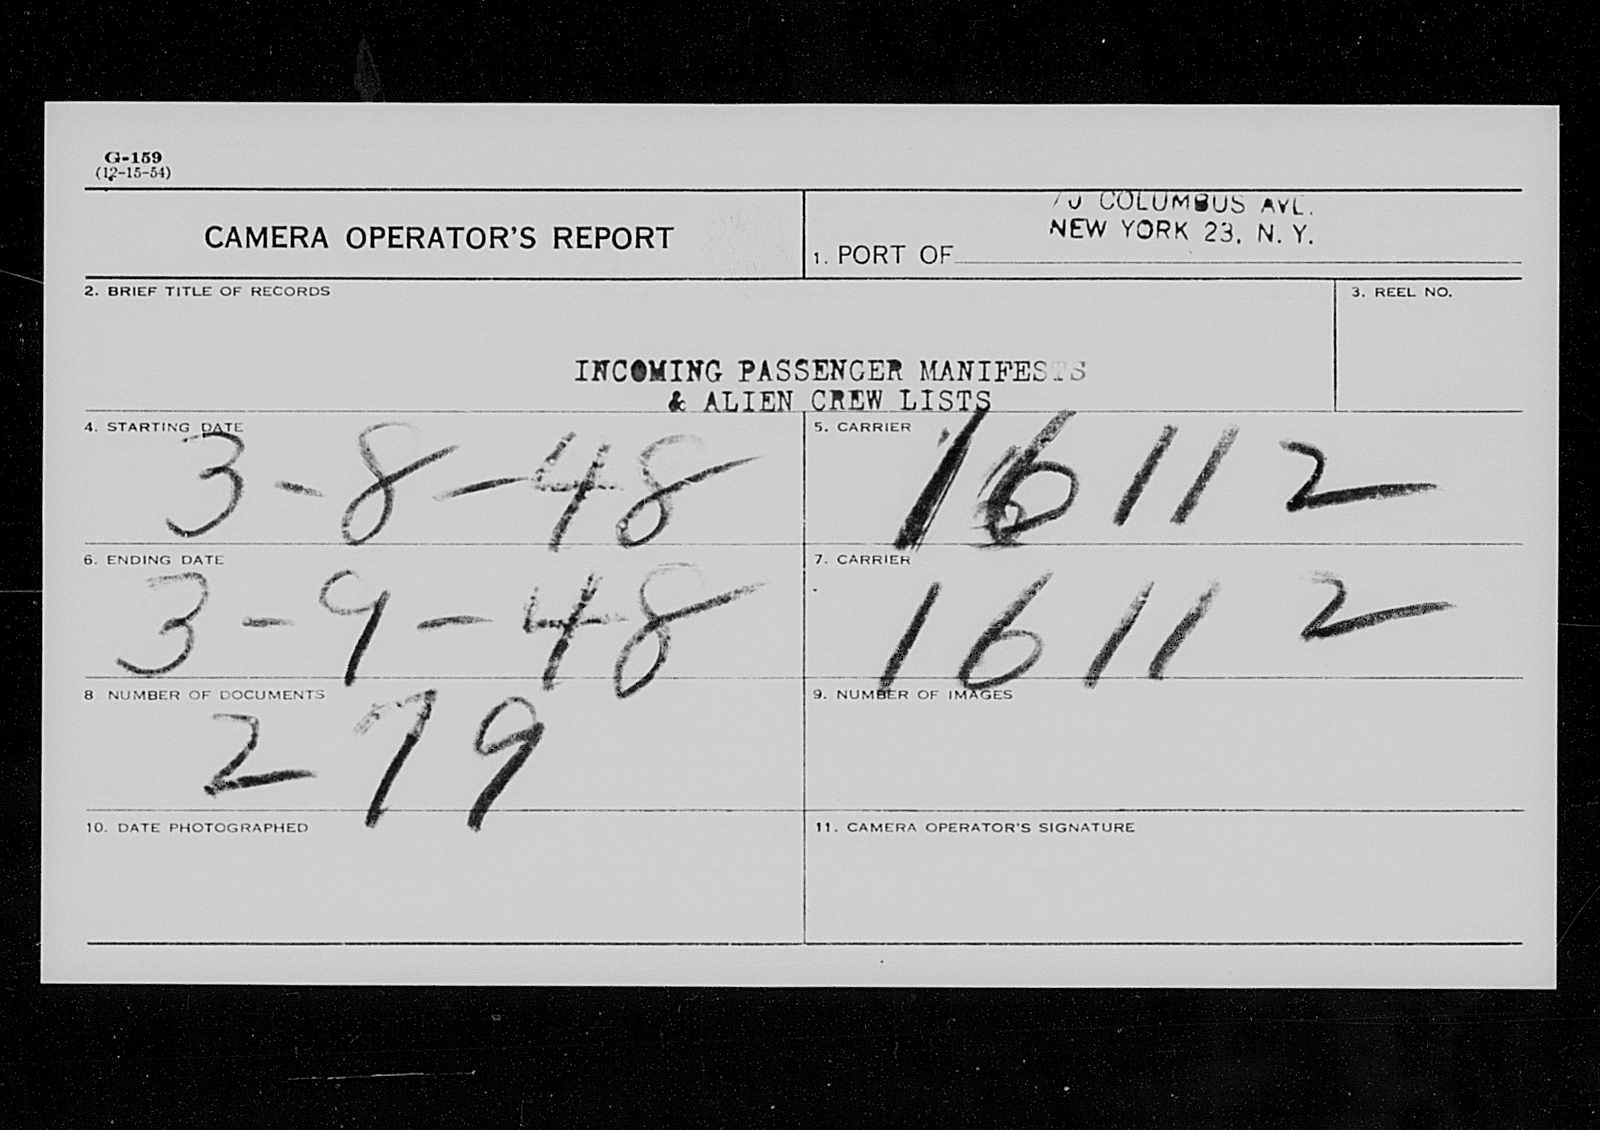 G-159
(12-15-54)
CAMERA OPERATOR'S REPORT
70 COLUMBUS AVE.
NEW YORK 23, N. Y.
1. PORT OF
2. BRIEF TITLE OF RECORDS
3. REEL NO.
INCOMING PASSENGER MANIFESTS
& ALIEN CREW LISTS
4. STARTING DATE
3-8-48
5. CARRIER
16112
6. ENDING DATE
3-9-48
7. CARRIER
16112
8 NUMBER OF DOCUMENTS
279
9. NUMBER OF IMAGES
10. DATE PHOTOGRAPHED
11. CAMERA OPERATOR'S SIGNATURE